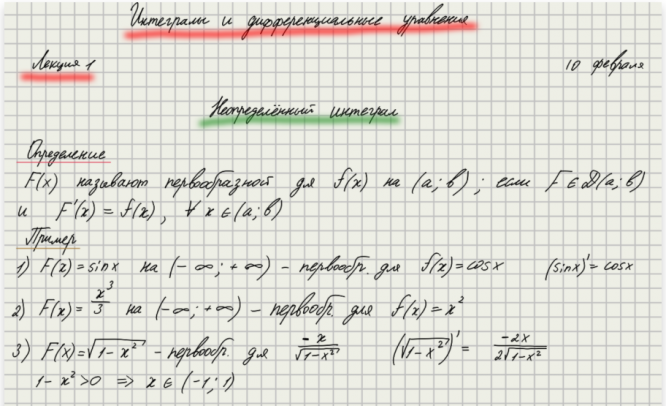 Интегралы и дифференциальные уравнения
Лекция 1 10 февраля
Неопределённый интеграл
Определение
F(x) называют первообразной для f(x) на (a; b); если F ∈ D(a; b)
и F'(x) = f(x), ∀ x ∈ (a; b)
Пример
1) F(x) = sinx на (- ∞; + ∞) - первообр. для f(x) = cosx (sinx)' = cosx
2) F(x) = x³/3 на (-∞; +∞) - первообр. для f(x) = x²
3) F(x) = √(1-x²) - первообр. для -x/√(1-x²) (√(1-x²))' = -2x/2√(1-x²)
1 - x² > 0 => x ∈ (-1; 1)